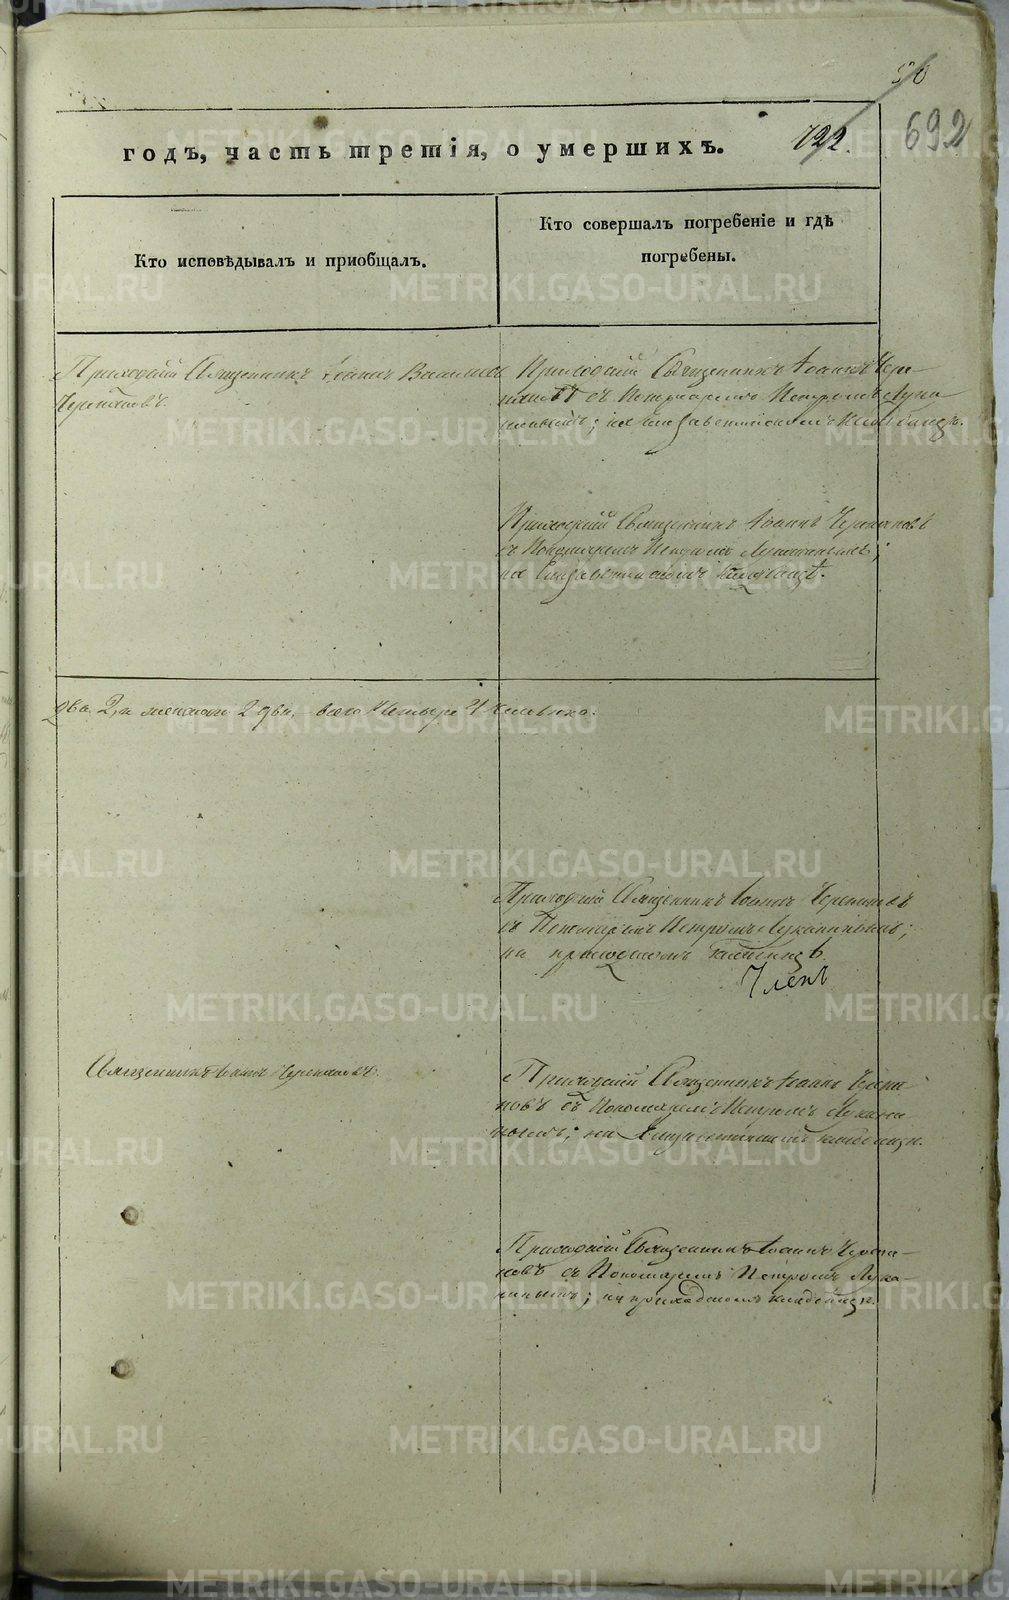 56
692
годъ, часть третія, о умершихъ.
722.
Кто исповѣдывалъ и приобщалъ.
Кто совершалъ погребеніе и гдѣ
погребены.
Приходскій Священникъ Іоаннъ
Черепановъ.
Приходскій Священникъ Іоаннъ Чере
пановъ съ Пономаремъ Петромъ Лука
нинымъ; на Елизаветинскомъ кладбищѣ.
Приходскій Священникъ Іоаннъ Черепановъ
съ Пономаремъ Петромъ Луканинымъ;
на Елизаветинскомъ кладбищѣ.
два 2, а женска 2 два, всего четыре 4 человѣка.
Приходскій Священникъ Іоаннъ Черепановъ
съ Пономаремъ Петромъ Луканинымъ;
на приходскомъ кладбищѣ.
Членъ
Священникъ Іоаннъ Черепановъ.
Приходскій Священникъ Іоаннъ Черепа
новъ съ Пономаремъ Петромъ Лукани
нымъ; на Елизаветинскомъ кладбищѣ.
Приходскій Священникъ Іоаннъ Черепа-
новъ съ Пономаремъ Петромъ Лука-
нинымъ; на приходскомъ кладбищѣ.
METRIKI.GASO-URAL.RU